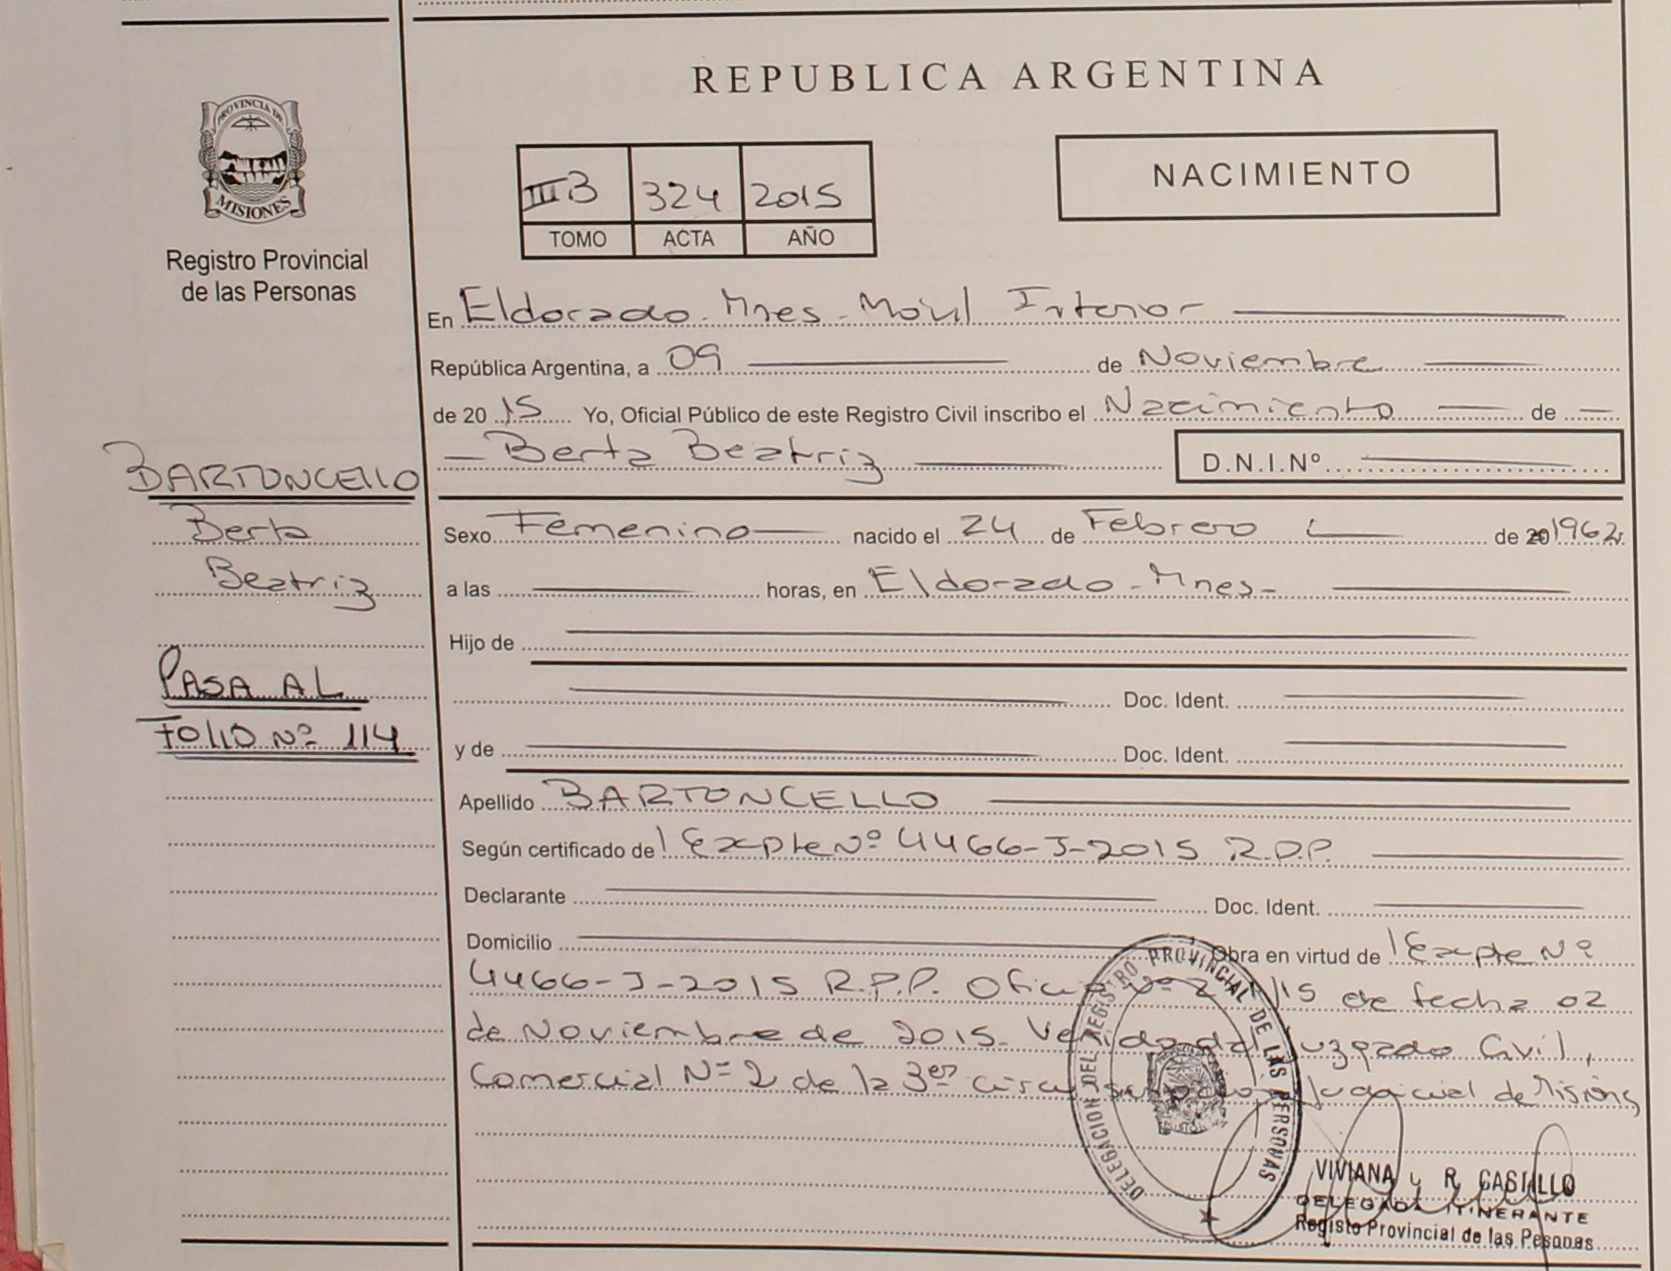 REPUBLICA ARGENTINA
PROVINCIA DE
MISIONES
Registro Provincial
de las Personas
III B 324 2015
TOMO ACTA AÑO
NACIMIENTO
En Eldorado - Mnes - Móvil Interior
República Argentina, a 09 de Noviembre
de 2015 Yo, Oficial Público de este Registro Civil inscribo el Nacimiento de
Berta Beatriz D.N.I.Nº
BARTONCELLO
Berta
Beatriz
PASA AL
FOLIO Nº 114
Sexo Femenino nacido el 24 de Febrero de 20 1962
a las horas, en Eldorado - Mnes -
Hijo de
Doc. Ident.
y de Doc. Ident.
Apellido BARTONCELLO
Según certificado de Expte Nº 4466-J-2015 R.P.P.
Declarante Doc. Ident.
Domicilio Obra en virtud de Expte Nº
4466-J-2015 R.P.P. Oficio Nº de fecha 02
de Noviembre de 2015 - Juzgado Civil,
Comercial Nº 2 de la 3er circunscripción Judicial de Misiones
DELEGACION DEL REGISTRO PROVINCIAL DE LAS PERSONAS
VIVIANA R. CASTILLO
DELEGADA ITINERANTE
Registo Provincial de las Pesonas